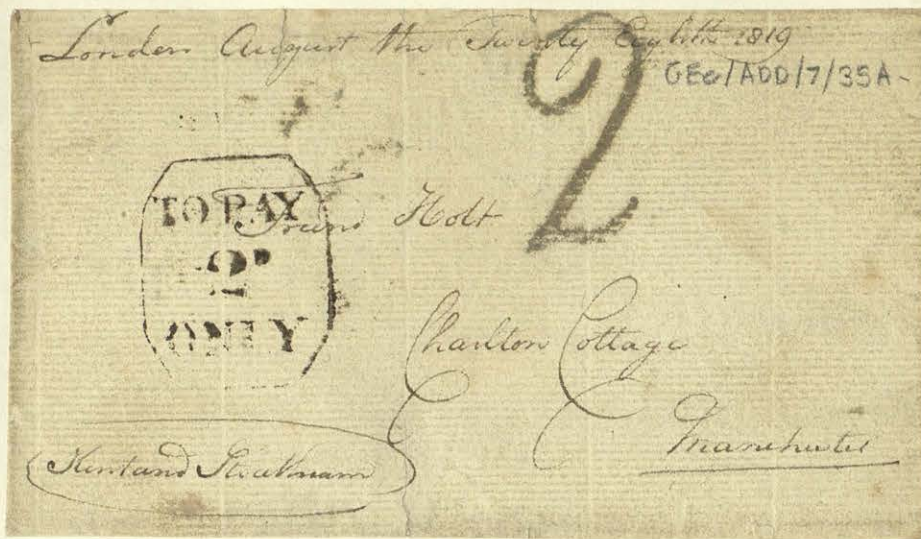 London August the Twenty Eighth 1819
GEO/ADD/7/35A
2
TO PAY
2D
ONLY
Holt
Charlton Cottage
Manchester
Kent and Strathearn